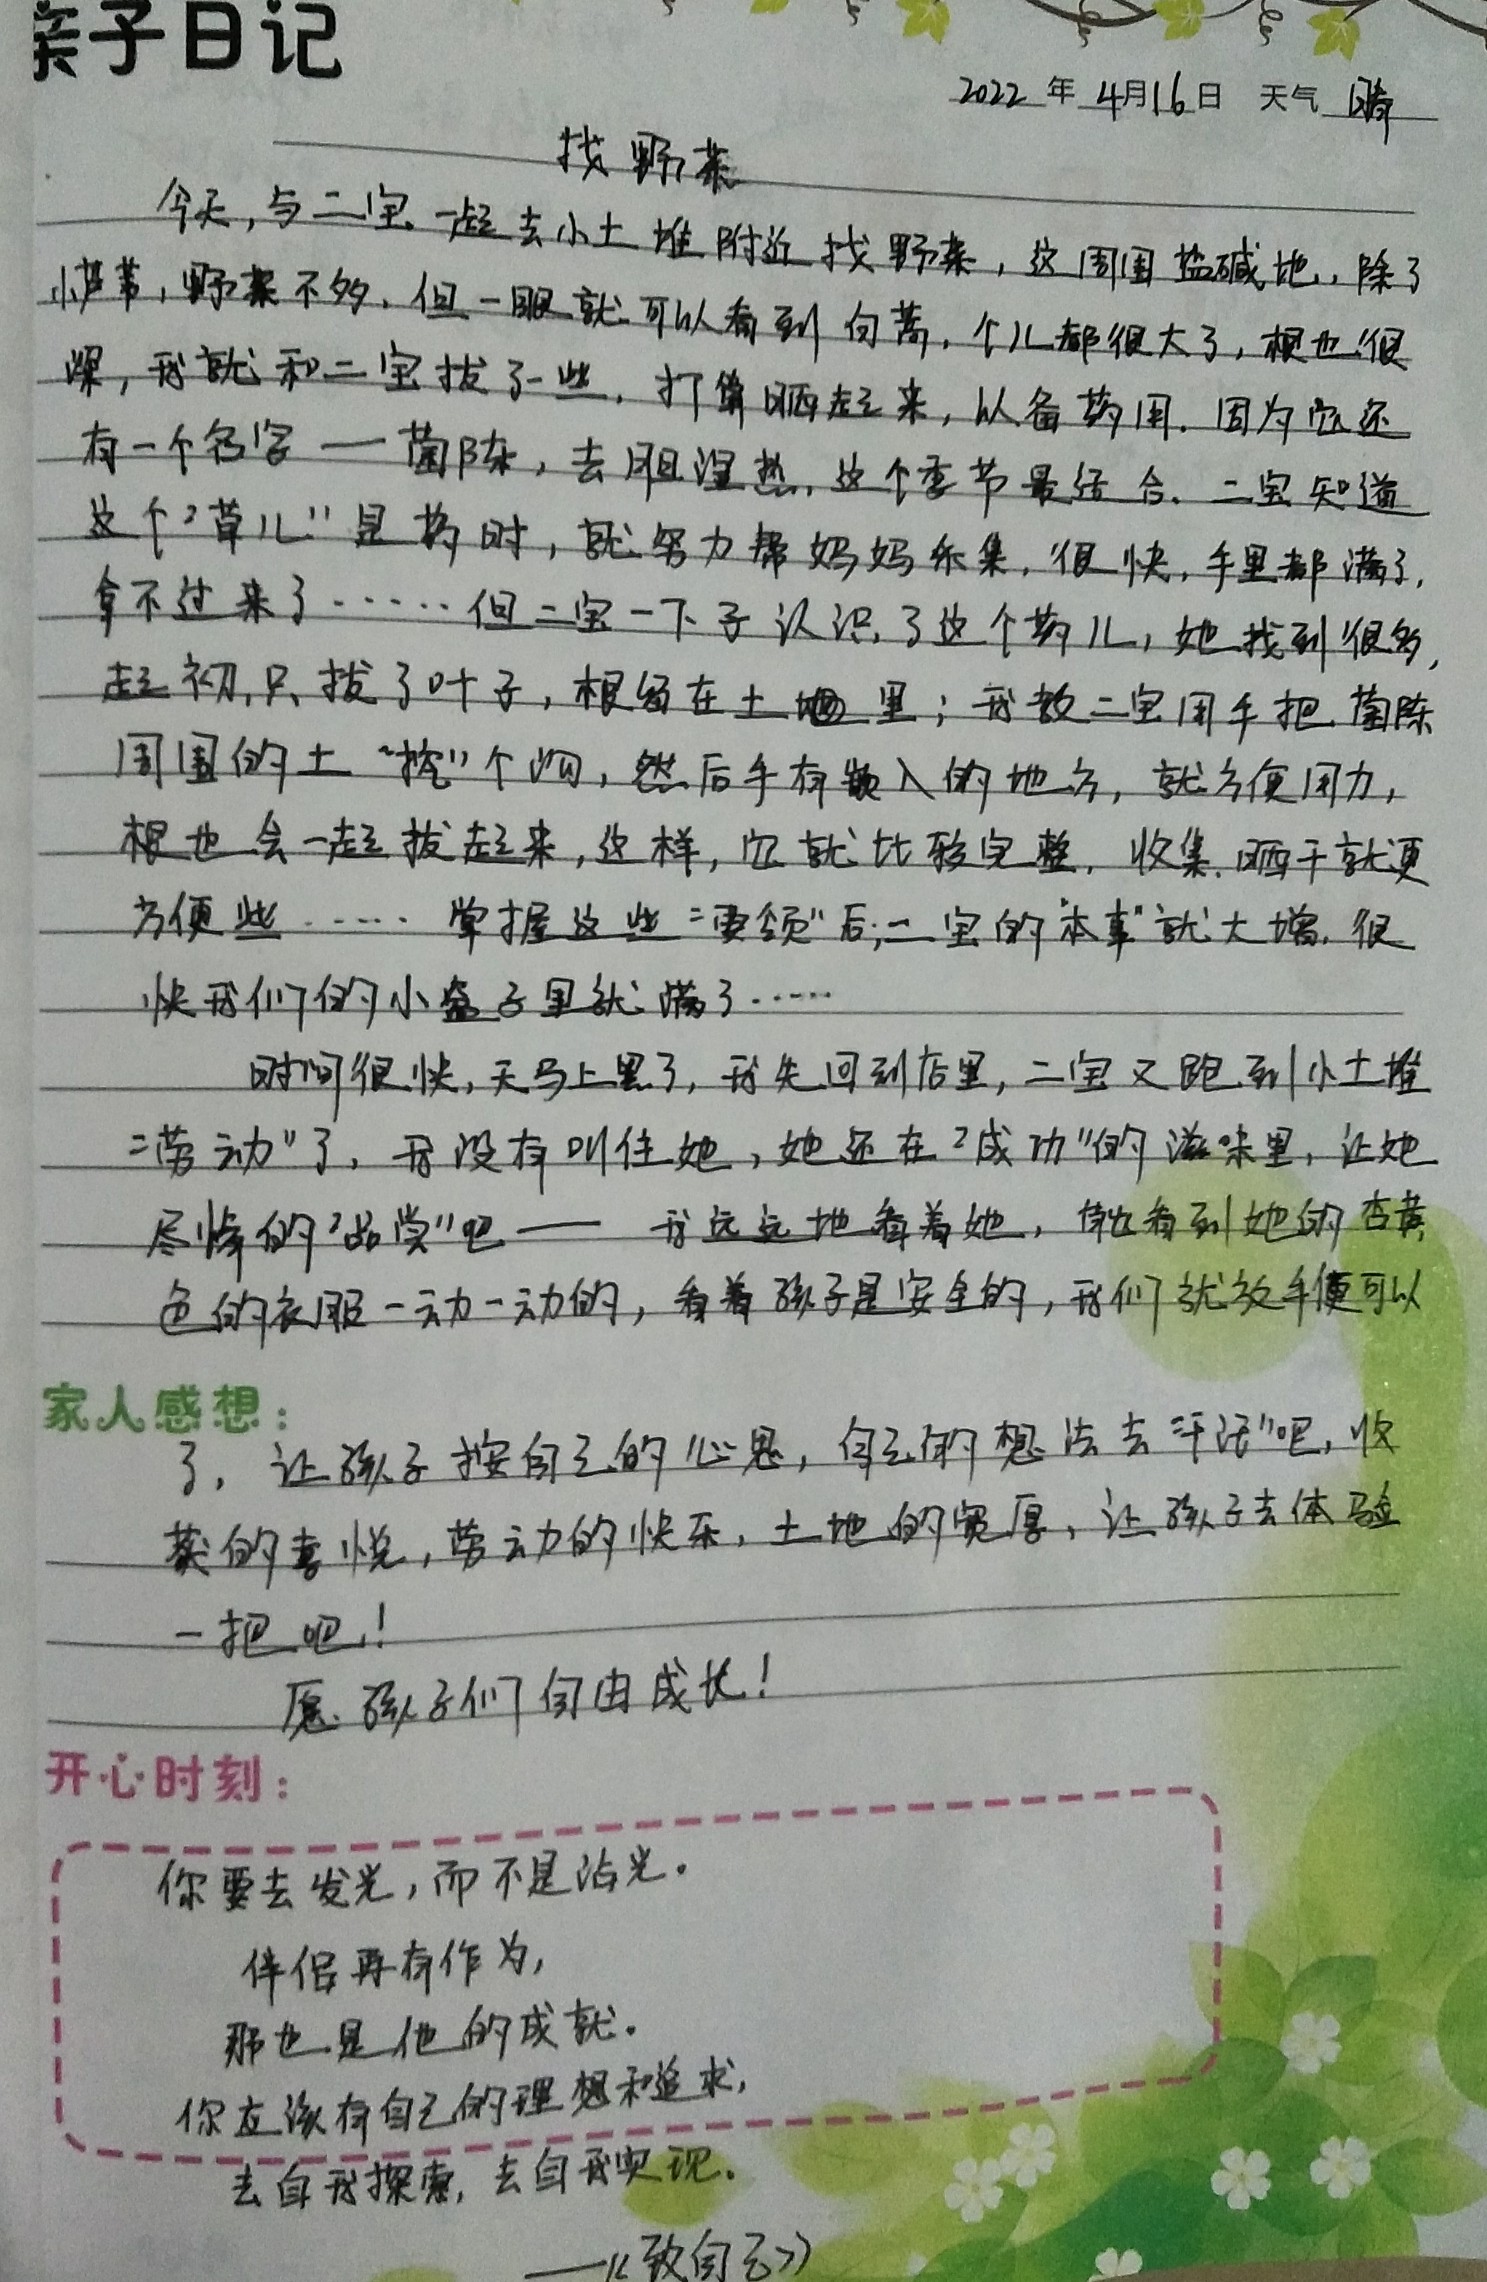 亲子日记
2022年4月16日 天气 晴
找野菜
今天,与二宝一起去小土堆附近找野菜,这周围盐碱地,除了
小芦苇,野菜不多,但一眼就可以看到白蒿,个儿都很大了,根也很
深,我就和二宝拔了一些,打算晒起来,以备药用.因为它还
有一个名字——茵陈,去胆湿热,这个季节最适合.二宝知道
这个“草儿”是药时,就努力帮妈妈采集,很快,手里都满了,
拿不过来了……但二宝一下子认识了这个药儿,她找到很多,
起初,只拔了叶子,根留在土地里;我教二宝用手把茵陈
周围的土“挖”个坑,然后手有嵌入的地方,就方便用力,
根也会一起拔起来,这样,它就比较完整,收集.晒干就更
方便些……掌握这些“要领”后,二宝的“本事”就大增,很
快我们的小盆子里就满了……
时间很快,天马上黑了,我先回到店里,二宝又跑到小土堆
“劳动”了,我没有叫住她,她还在“成功”的滋味里,让她
尽情的“品尝”吧——我远远地看着她,就看到她的杏黄
色的衣服一动一动的,看着孩子是安全的,我们就放手便可以
家人感想:
了,让孩子按自己的心思,自己的想法去“干活”吧,收
获的喜悦,劳动的快乐,土地的宽厚,让孩子去体验
一把吧!
愿孩子们自由成长!
开心时刻:
你要去发光,而不是沾光。
伴侣再有作为,
那也是他的成就。
你应该有自己的理想和追求,
去自我探索,去自我实现。
——《致自己》